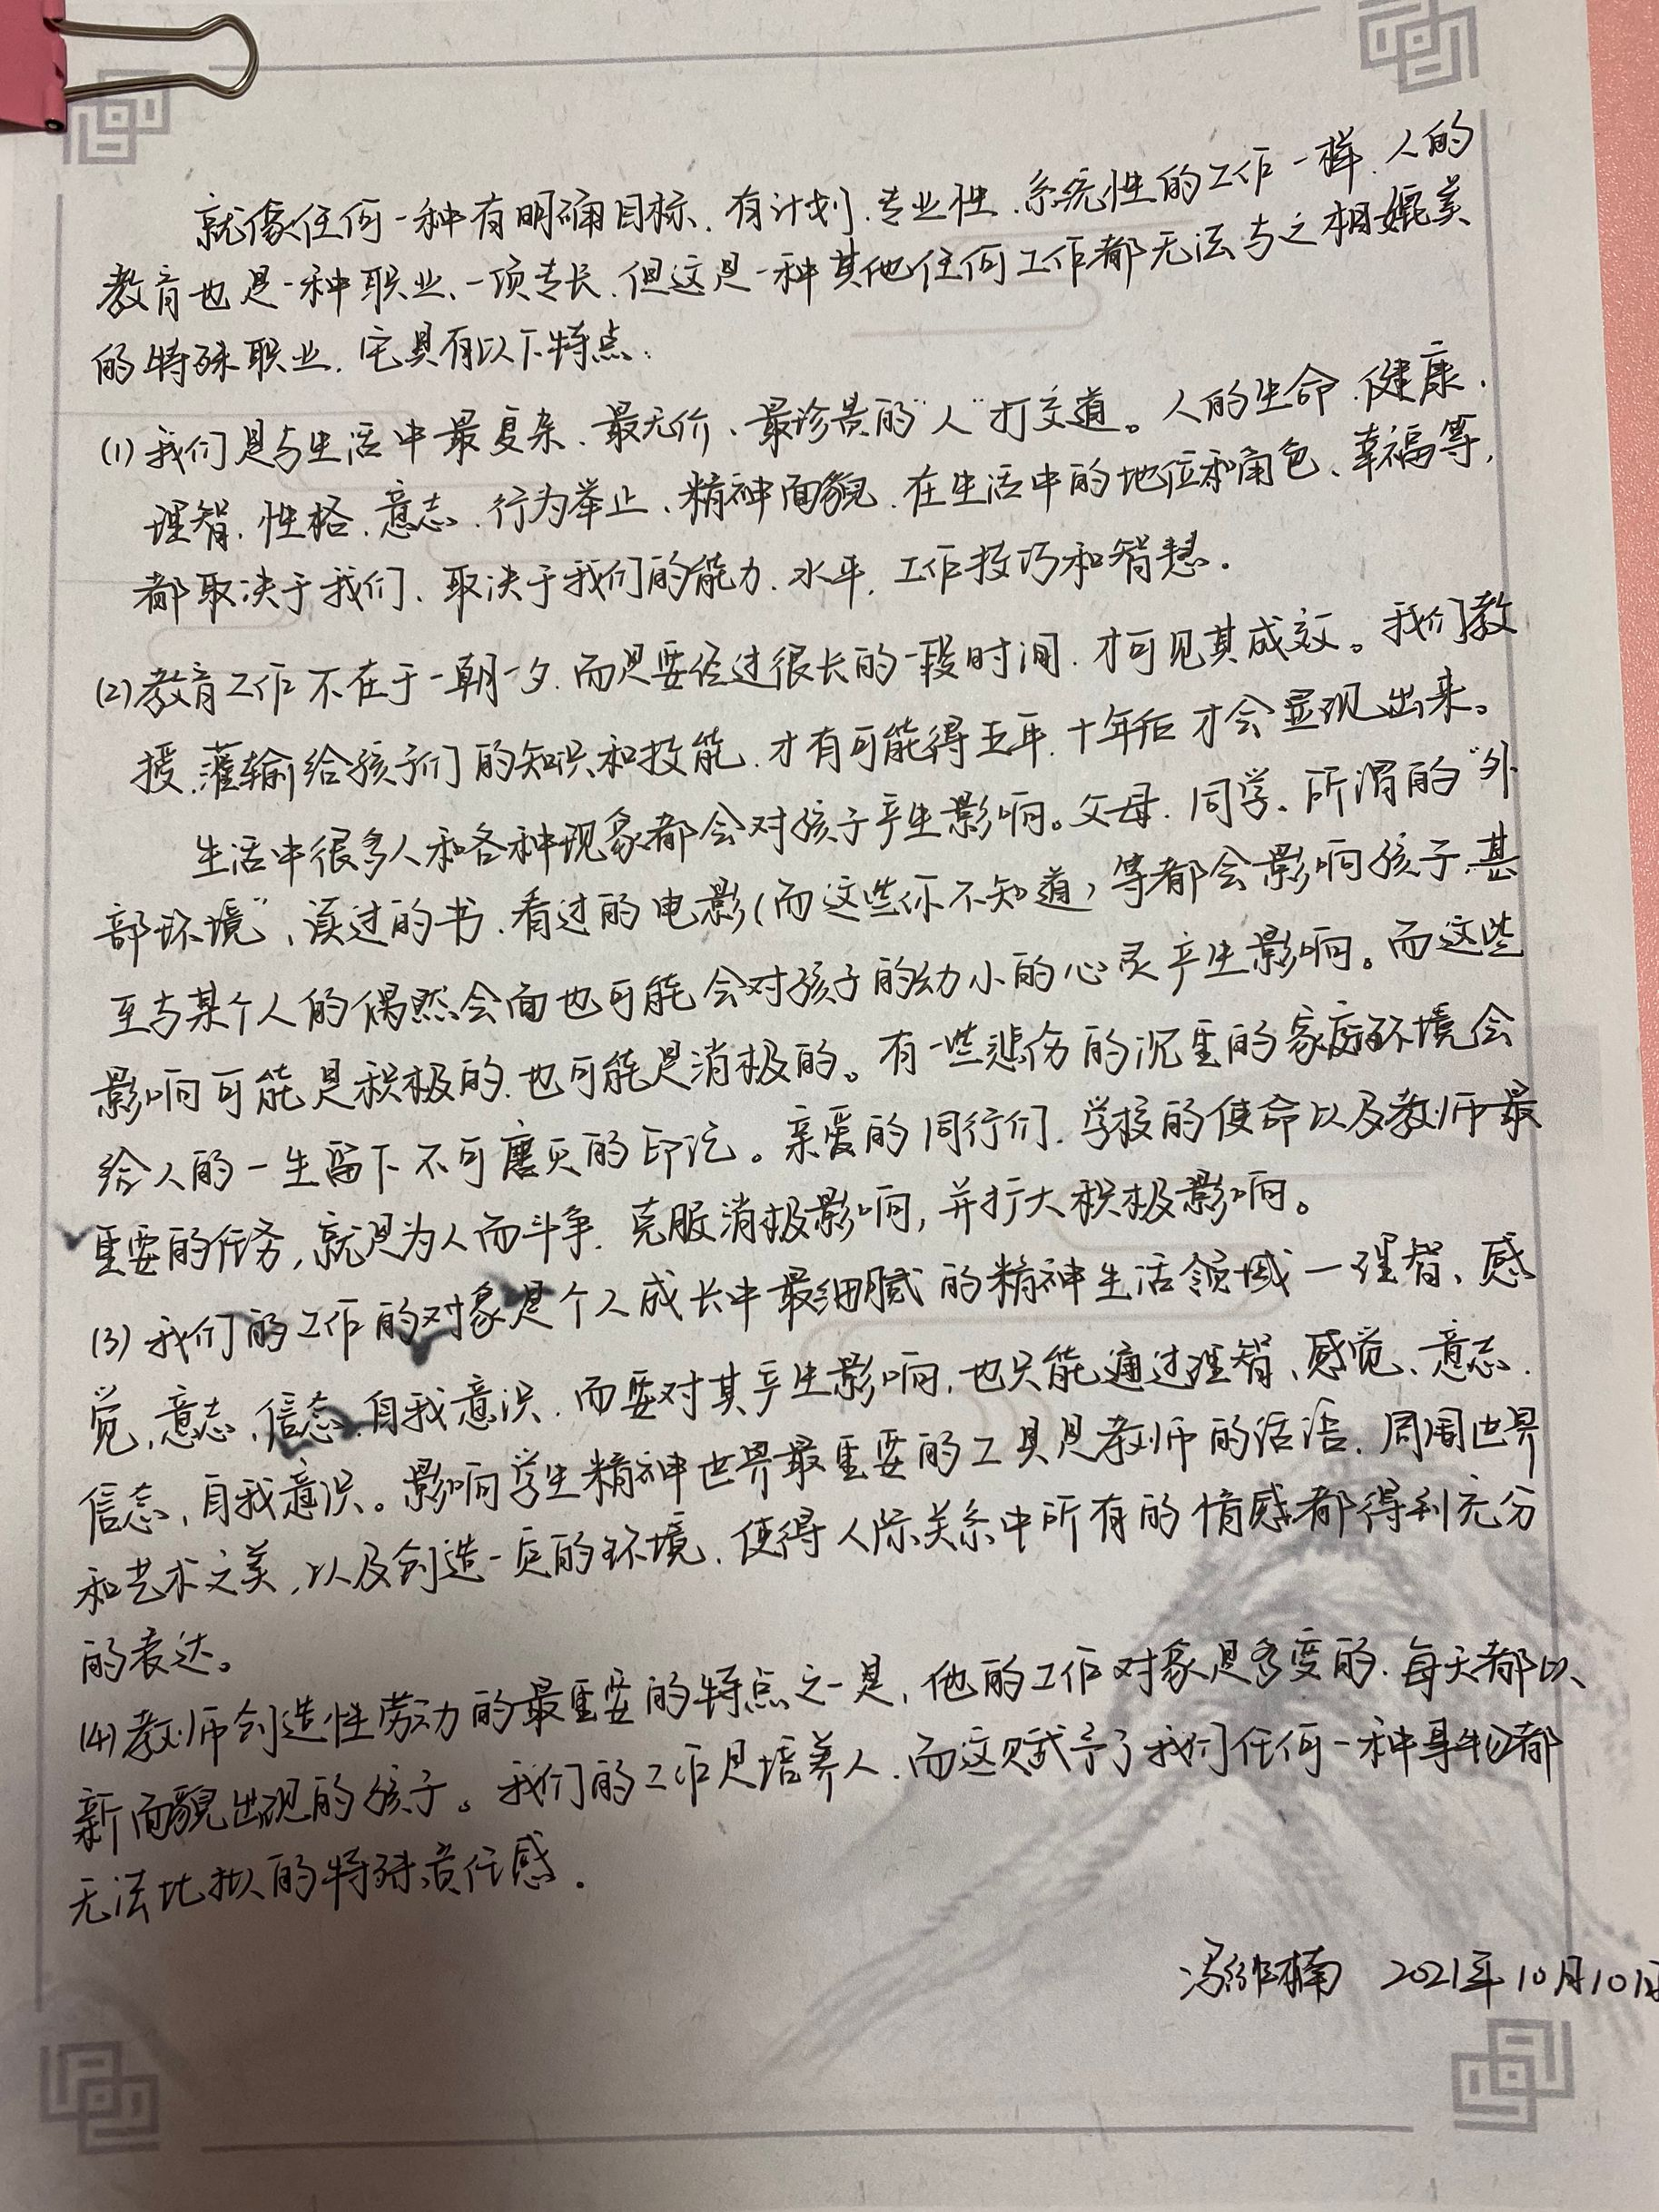 就像任何一种有明确目标、有计划、专业性、系统性的工作一样,人的
教育也是一种职业、一项专长,但这是一种其他任何工作都无法与之相媲美
的特殊职业,它具有以下特点:
(1)我们是与生活中最复杂、最无价、最珍贵的“人”打交道。人的生命、健康、
理智、性格、意志、行为举止、精神面貌,在生活中的地位和角色、幸福等,
都取决于我们、取决于我们的能力、水平、工作技巧和智慧.
(2)教育工作不在于一朝一夕,而是要经过很长的一段时间,才可见其成效。我们教
授、灌输给孩子们的知识和技能,才有可能得五年、十年后才会显现出来。
生活中很多人和各种现象都会对孩子产生影响。父母、同学、所谓的“外
部环境”、读过的书、看过的电影(而这些你不知道)等都会影响孩子,甚
至与某个人的偶然会面也可能会对孩子的幼小的心灵产生影响。而这些
影响可能是积极的,也可能是消极的。有一些悲伤的沉重的家庭环境会
给人的一生留下不可磨灭的印记。亲爱的同行们,学校的使命以及教师最
重要的任务,就是为人而斗争,克服消极影响,并扩大积极影响。
(3)我们的工作的对象是个人成长中最细腻的精神生活领域—理智、感
觉、意志、信念、自我意识,而要对其产生影响,也只能通过理智、感觉、意志、
信念、自我意识。影响学生精神世界最重要的工具是教师的话语、周围世界
和艺术之美,以及创造一页的环境,使得人际关系中所有的情感都得到充分
的表达。
(4)教师创造性劳动的最重要的特点之一是,他的工作对象是多变的,每天都以
新面貌出现的孩子。我们的工作是培养人,而这赋予了我们任何一种都
无法比拟的特殊责任感.
2021年10月10日